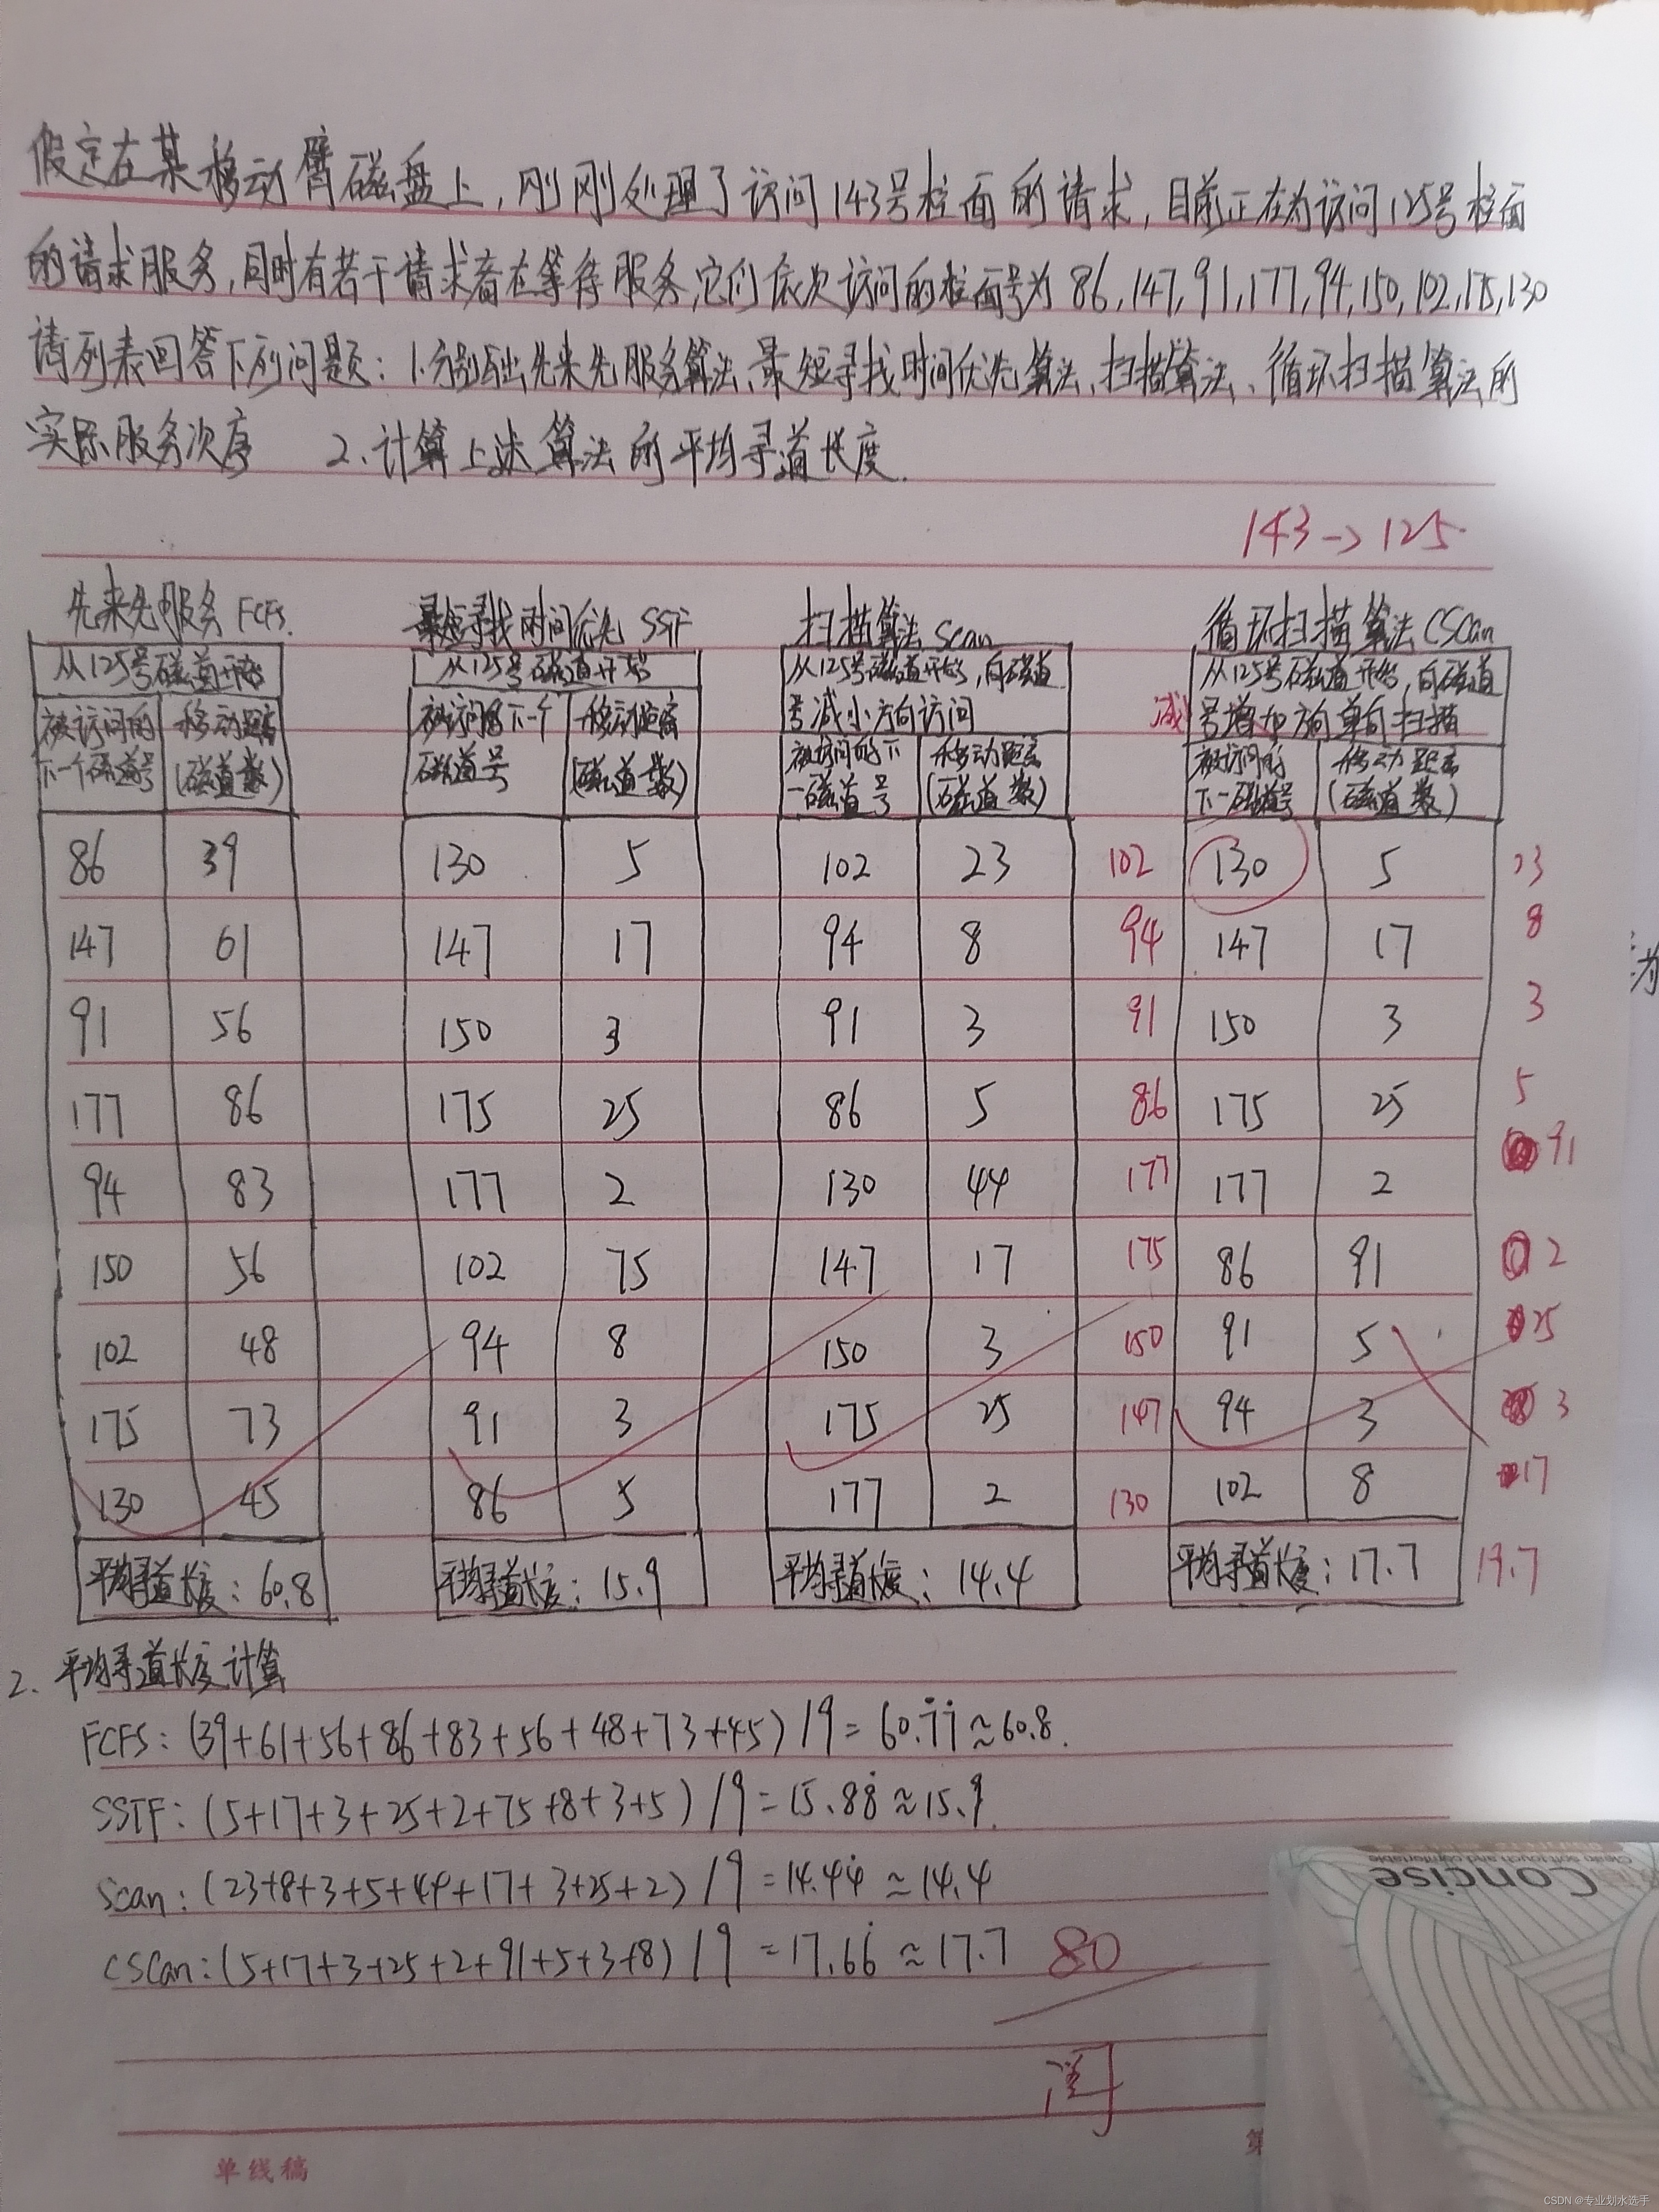 假定在某移动臂磁盘上，刚刚处理了访问143号柱面的请求，目前正在为访问125号柱面
的请求服务，同时有若干请求者在等待服务，它们依次访问的柱面号为86,147,91,177,94,150,102,175,130
请列表回答下列问题：1.分别写出先来先服务算法、最短寻找时间优先算法、扫描算法、循环扫描算法的
实际服务次序 2.计算上述算法的平均寻道长度.
143->125
先来先服务 FCFS. 最短寻找时间优先 SSTF 扫描算法 Scan 循环扫描算法 CSCan
从125号磁道开始 从125号磁道开始 从125号磁道开始，向磁道 从125号磁道开始，向磁道
号减小方向访问 减 号增加方向单向扫描
被访问的 移动距离 被访问的下一个 移动距离 被访问的下 移动距离 被访问的 移动距离
下一个磁道号 (磁道数) 磁道号 (磁道数) 一磁道号 (磁道数) 下一磁道号 (磁道数)
86 39 130 5 102 23 102 130 5 23
147 61 147 17 94 8 94 147 17 8
91 56 150 3 91 3 91 150 3 3
177 86 175 25 86 5 86 175 25 5
94 83 177 2 130 44 177 177 2 91
150 56 102 75 147 17 175 86 91 2
102 48 94 8 150 3 150 91 5 25
175 73 91 3 175 25 147 94 3 3
130 45 86 5 177 2 130 102 8 17
平均寻道长度：60.8 平均寻道长度：15.9 平均寻道长度：14.4 平均寻道长度：17.7 19.7
2. 平均寻道长度计算
FCFS: (39+61+56+86+83+56+48+73+45)/9=60.7̇7̇≈60.8.
SSTF: (5+17+3+25+2+75+8+3+5)/9=15.88̇≈15.9.
Scan: (23+8+3+5+44+17+3+25+2)/9=14.44̇≈14.4
CSCan:(5+17+3+25+2+91+5+3+8)/9=17.66̇≈17.7 80
Concise
Clean soft touch and comfortable
单线稿
第
CSDN @专业划水选手